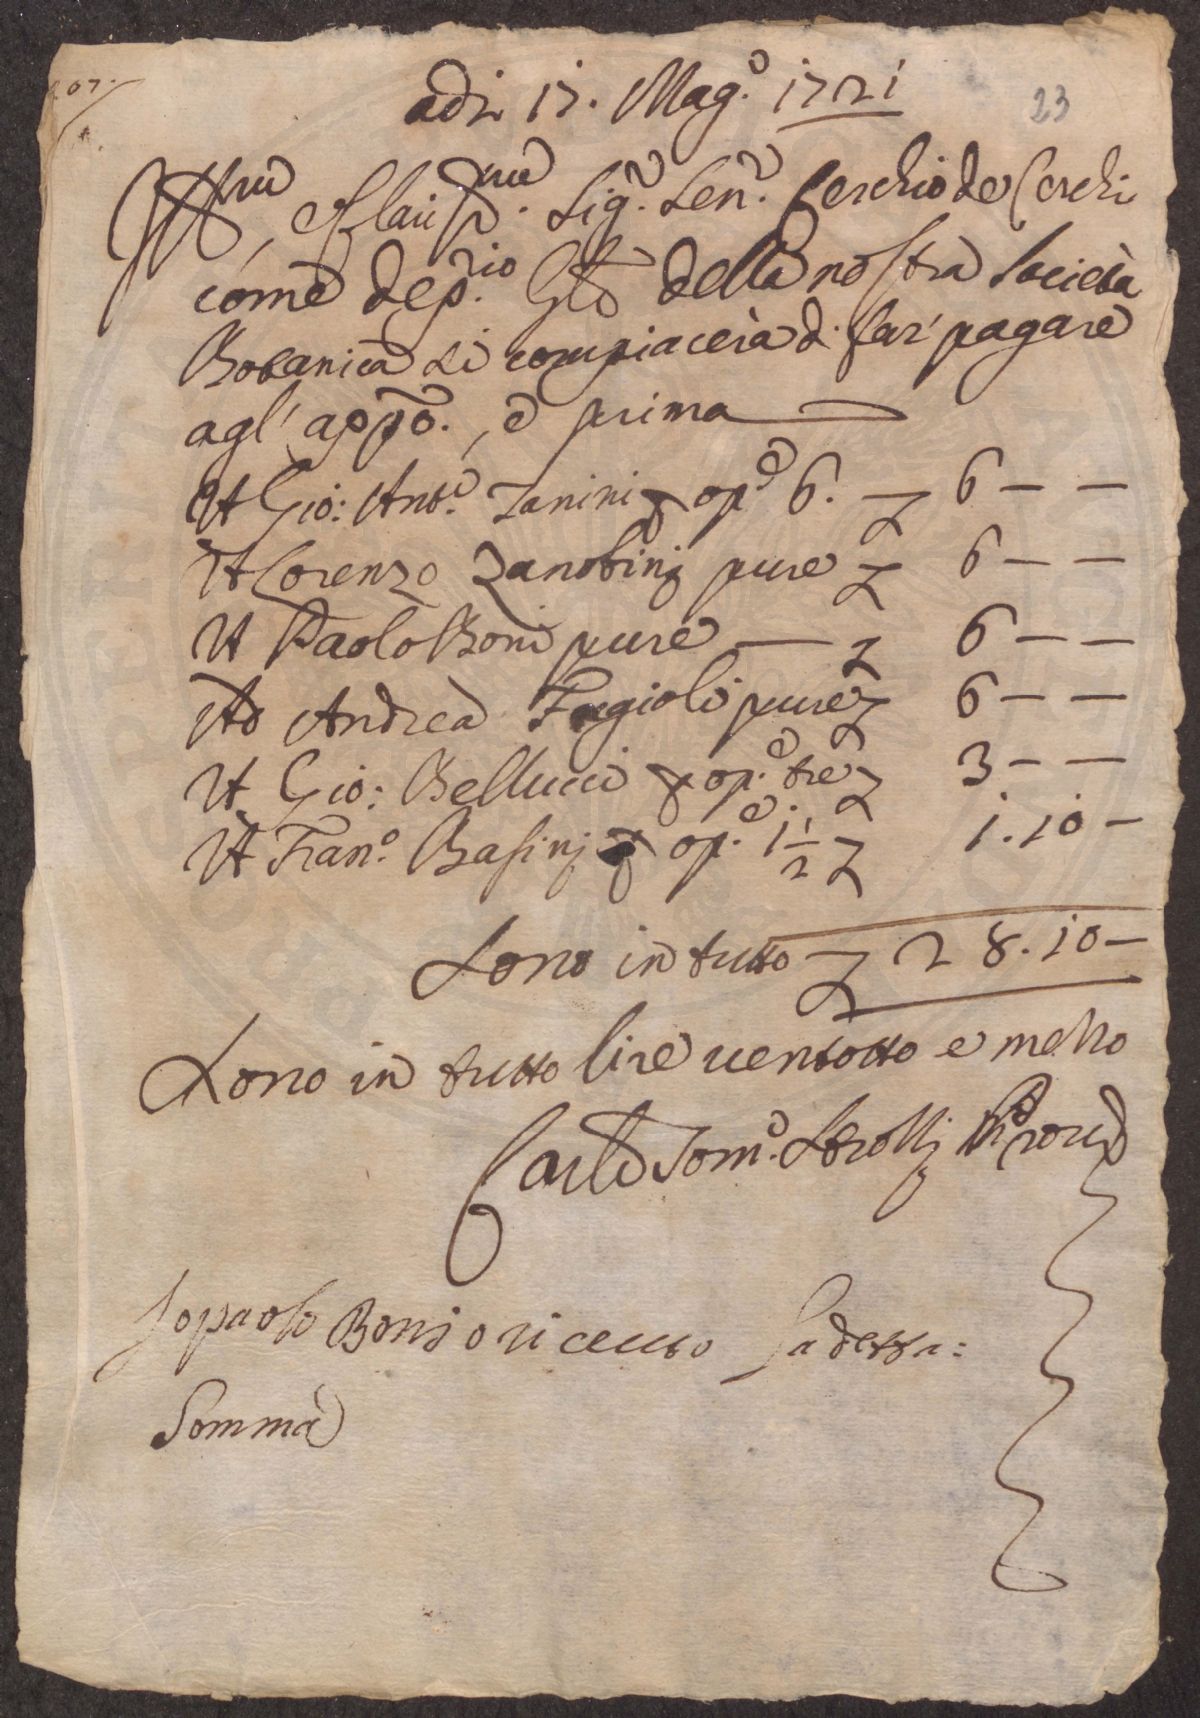 107.
adi 17. Mag.o 1721
23
Ill.mo, e Clariss.mo Sig.r Sen.r Cerchio de Cerchi
come dep.rio Gle della nostra Società
Botanica si compiacerà di far' pagare
agl' appo., e prima
A Gio: Ant.o Zanini p op.e 6. — L 6 — —
A Lorenzo Zanobini pure L 6 — —
A Paolo Boni pure — L 6 — —
Ad Andrea Fagioli pure L 6 — —
A Gio: Bellucci p op.e tre L 3 — —
A Fran.o Basinj p op.e 1 1/2 L 1.10 —
Sono in tutto L 28.10 —
Sono in tutto lire ventotto e mezzo
Carlo Tom.o
Io paolo Boni o riceuto la detta:
Somma